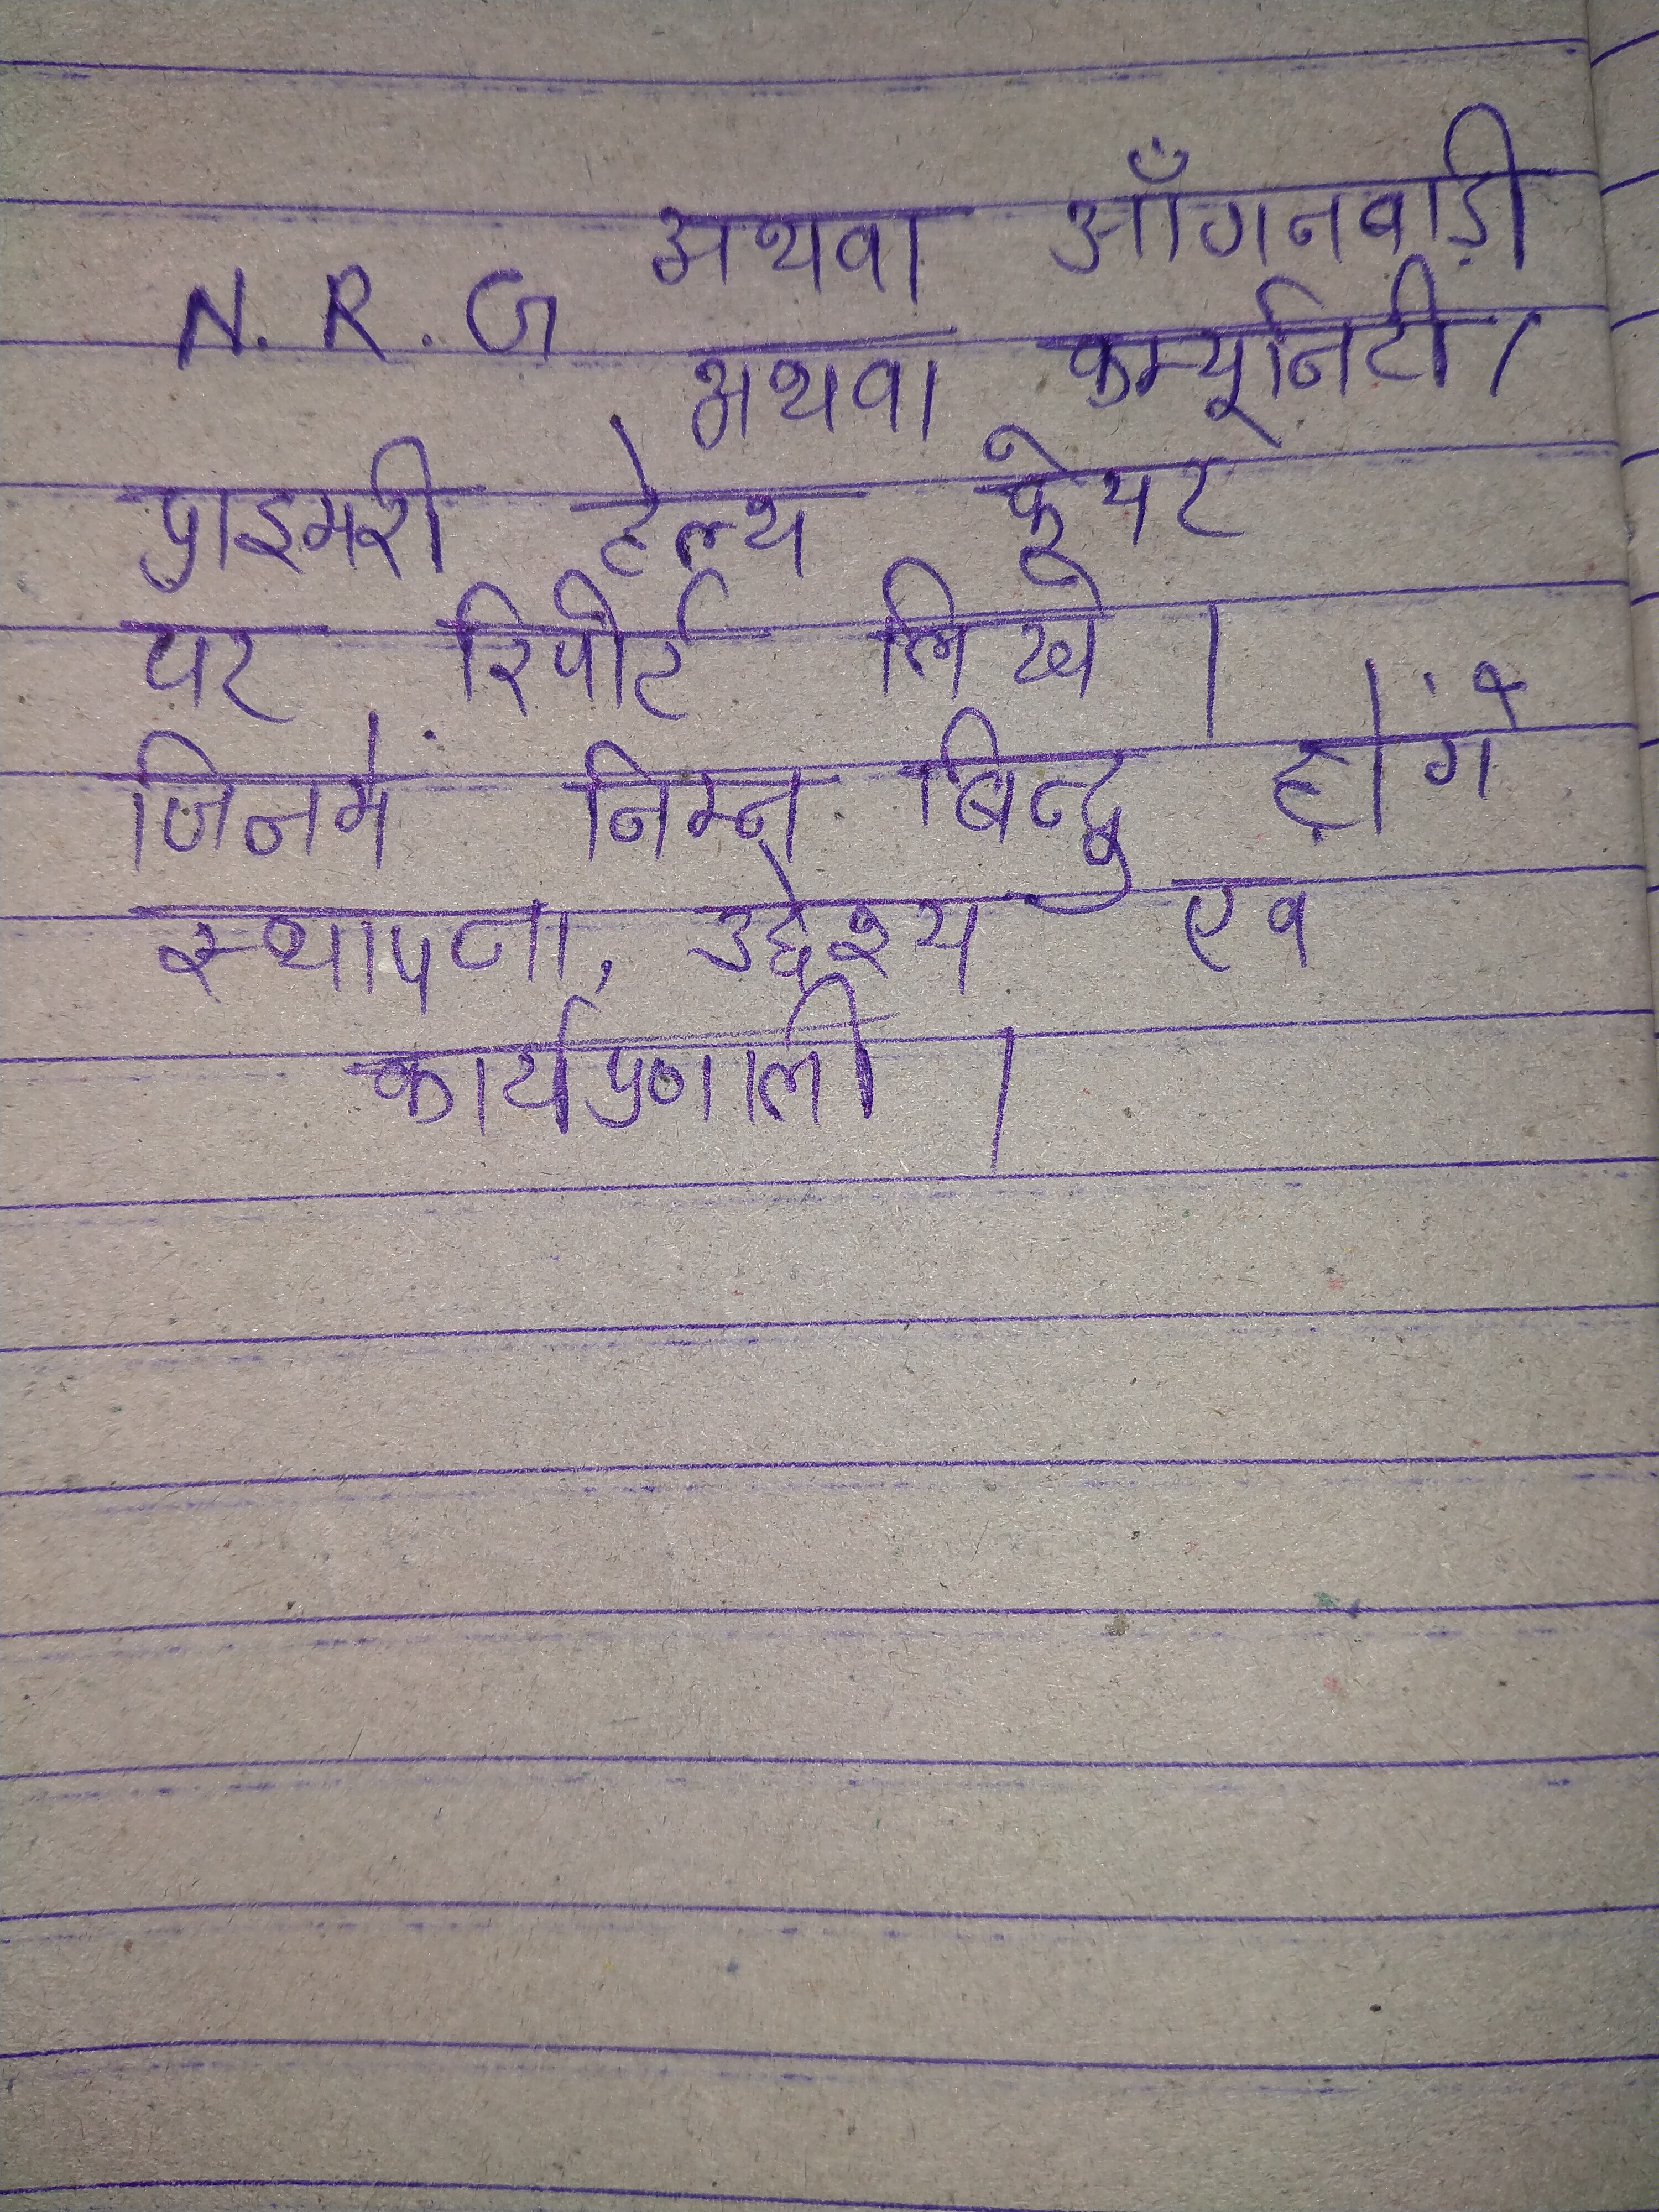 N. R. G अथवा आँगनवाड़ी
अथवा कम्यूनिटी /
प्राइमरी हेल्थ केयर
पर रिपोर्ट लिखे ।
जिनमें निम्न बिन्दु होंगे
स्थापना, उद्देश्य एव
कार्यप्रणाली ।